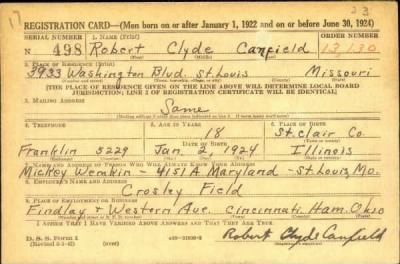 23
REGISTRATION CARD—(Men born on or after January 1, 1922 and on or before June 30, 1924)
SERIAL NUMBER 1. NAME (Print) ORDER NUMBER
N 498 Robert Clyde Canfield 13,130
(First) (Middle) (Last)
2. PLACE OF RESIDENCE (Print)
3933 Washington Blvd. St. Louis Missouri
[THE PLACE OF RESIDENCE GIVEN ON THE LINE ABOVE WILL DETERMINE LOCAL BOARD
JURISDICTION; LINE 2 OF REGISTRATION CERTIFICATE WILL BE IDENTICAL]
3. MAILING ADDRESS
Same
4. TELEPHONE 5. AGE IN YEARS 6. PLACE OF BIRTH
18 St. Clair Co.
DATE OF BIRTH
Franklin 5229 Jan. 2, 1924 Illinois
7. NAME AND ADDRESS OF PERSON WHO WILL ALWAYS KNOW YOUR ADDRESS
Mickoy - 4151 A Maryland - St. Louis, Mo.
8. EMPLOYER'S NAME AND ADDRESS
Crosley Field
9. PLACE OF EMPLOYMENT OR BUSINESS
Findlay + Western Ave. Cincinnati, Ham. Ohio
I AFFIRM THAT I HAVE VERIFIED ABOVE ANSWERS AND THAT THEY ARE TRUE.
D. S. S. Form 1
Robert Clyde Canfield